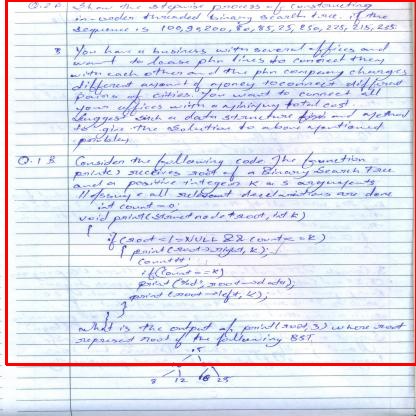 Q.2 A Show the stepwise process of constructing
in-order threaded binary search tree. if the
sequence is 100, 90, 200, 80, 85, 25, 250, 225, 215, 235.
B You have a business with several offices and
want to lease phn lines to connect them
with each other and the phn company charges
different amount of money to connect different
pairs of cities. You want to connect all
your offices with a minimum total cost.
Suggest such a data structure and method
to give the solution to above mentioned
problem.
Q.1 B Consider the following code The function
print() receives root of a Binary Search Tree
and a positive integer K as arguments
// Assume all relevant declarations are done
int count = 0;
void print(struct node *root, int k)
{
if (root != NULL && count <= k)
{ print(root->right, k);
count++;
if (count == k)
print("%d", root->data);
print(root->left, k);
}
}
what is the output of print(root, 3) where root
represent root of the following BST.
15
8 12 18 25